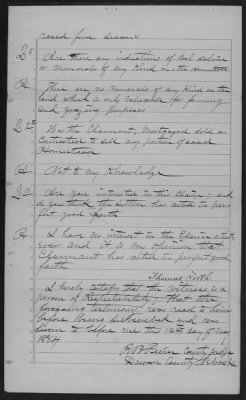 raised five seasons
Are there any indications of Coal saline
or minerals of any kind on the land
There are no minerals of any kind on the
land which is only valuable for farming
and grazing purposes
Has the Claimant, Mortgaged sold or
Contracted to sell any portion of said
Homestead
Not to my Knowledge
Are you interested in this claim; and
do you think the Settler has acted in per-
fect good faith
I have no interest in the Claim what-
ever and it is my opinion that
Claimant has acted in perfect good
faith
Thomas
I hereby certify that the witness is a
person of Respectability; That the
foregoing testimony was read to him
before being subscribed and was
sworn to before me this 16th day of May
1884
County Judge
Dawson County Nebraska